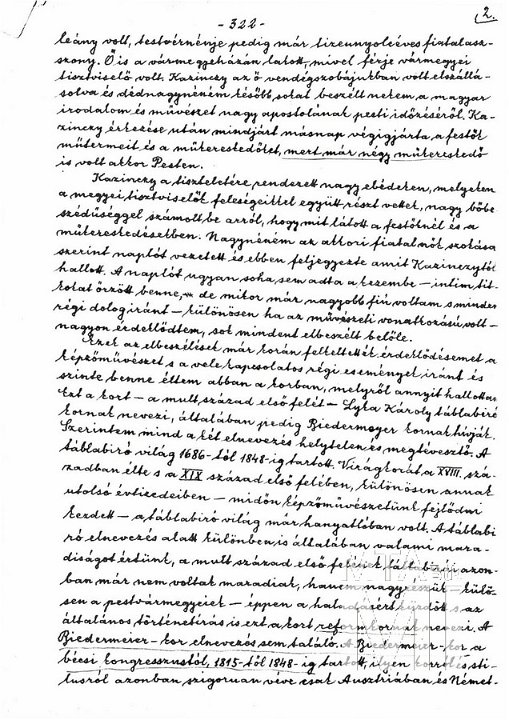 - 322 -
2.
leány volt, testvérnénje pedig már tizennyolcéves fiatalasz-
szony. Ő is a vármegyeházán lakott, mivel férje vármegyei
tisztviselő volt. Kazinczy az ő vendégszobájukban volt elszállá-
solva és dédnagynéném később sokat beszélt nekem a magyar
irodalom és művészet nagy apostolának pesti időzéséről. Ka-
zinczy érkezése után mindjárt másnap végigjárta a festők
műtermeit és a műkereskedőket, mert már négy műkereskedő
is volt akkor Pesten.
Kazinczy a tiszteletére rendezett nagy ebéden, melyeken
a megyei tisztviselők feleségeikkel együtt részt vettek, nagy bőbe
szédűséggel számolt be arról, hogy mit látott a festőknél és a
műkereskedésekben. Nagynéném az akkori fiatal nők szokása
szerint naplót vezetett és ebben feljegyezte amit Kazinczytól
hallott. A naplót ugyan soha sem adta a kezembe – intim tit-
kokat őrzött benne, – de mikor már nagyobb fiú voltam s minden
régi dolog iránt – különösen ha az művészeti vonatkozású volt –
nagyon érdeklődtem, sok mindent elbeszélt belőle.
Ezek az elbeszélések már korán felkeltették érdeklődésemet a
képzőművészet s a vele kapcsolatos régi események iránt és
szinte benne éltem abban a korban, melyről annyit hallottam.
Ezt a kort – a mult század első felét – Lyka Károly táblabíró
kornak nevezi, általában pedig Biedermeyer kornak hívják.
Szerintem mind a két elnevezés helytelen és megtévesztő. A
táblabíró világ 1686-tól 1848-ig tartott. Virágkorát a XVIII. szá-
zadban élte s a XIX század első felében, különösen annak
utolsó évtizedeiben – midőn képzőművészetünk fejlődni
kezdett – a táblabíró világ már hanyatlóban volt. A táblabí
ró elnevezés alatt különben is általában valami mara-
diságot értünk, a mult század első felének táblabírái azon-
ban már nem voltak maradiak, hanem nagyrészük – külö-
sen a pestvármegyeiek – éppen a haladásért küzdött s az
általános történetírás is ezt a kort reformkornak nevezi. A
Biedermeier-kor elnevezés sem találó. A Biedermeier-kor a
bécsi kongresszustól, 1815-től 1848-ig tartott, ilyen korról és stí-
lusról azonban szigorúan véve csak Ausztriában és Német-